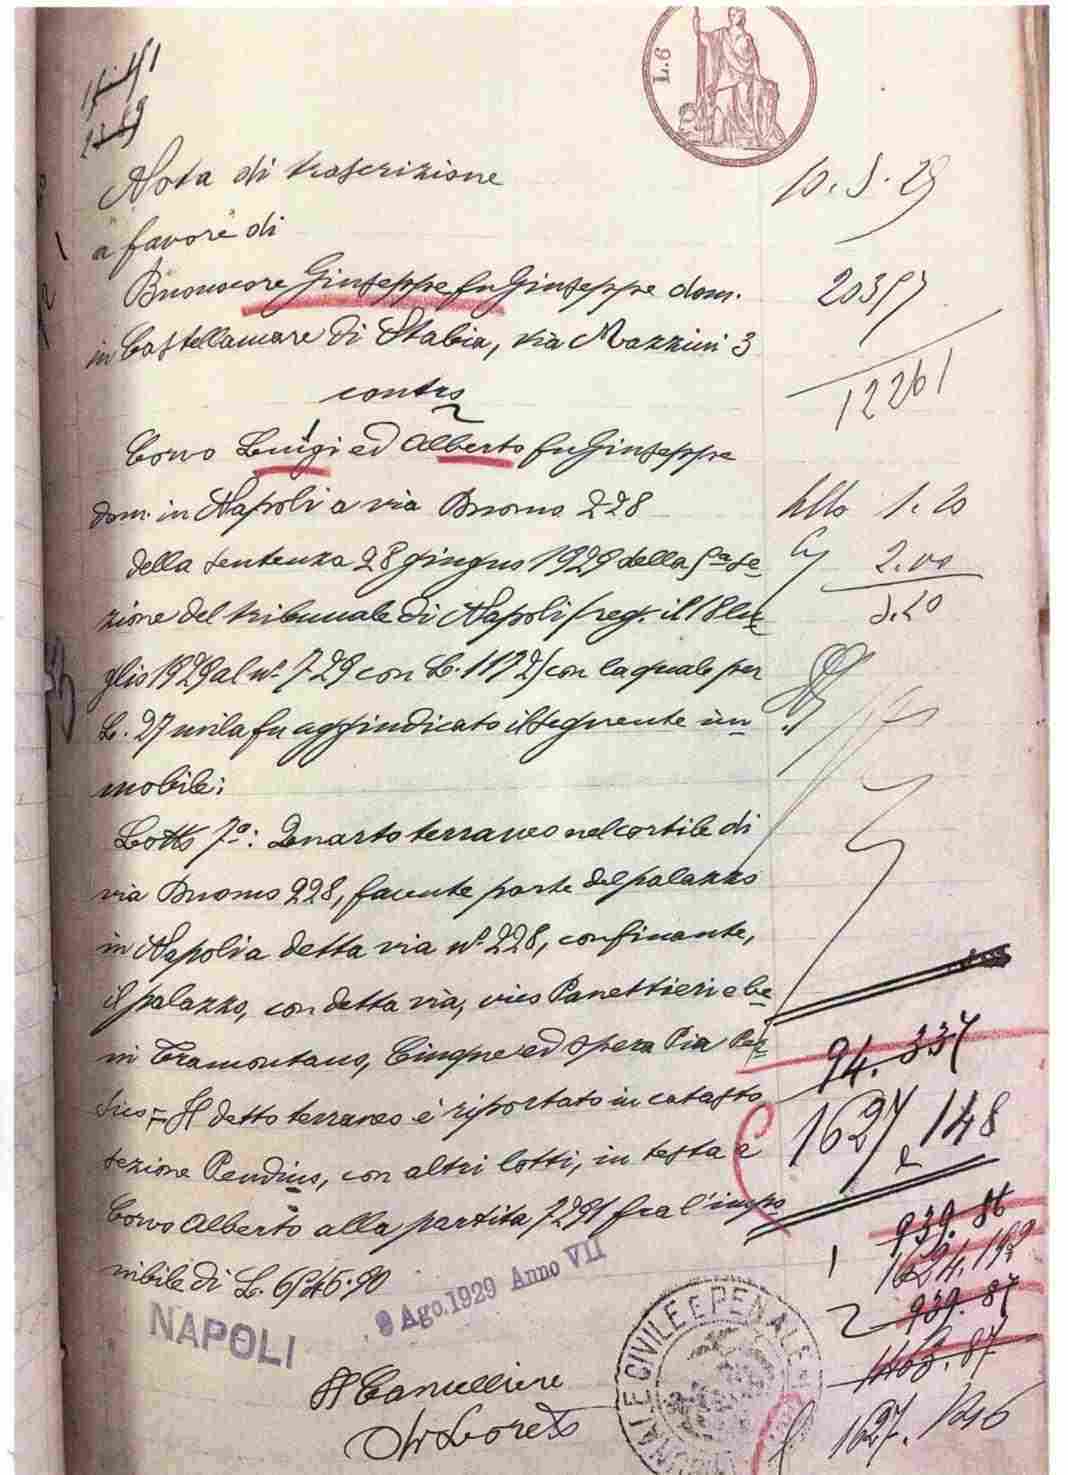 L.6
Nota di trascrizione
10.8.29
a favore di
Buonocore Giuseppe fu Giuseppe dom.
20357
in Castellamare di Stabia, via Mazzini 3
12261
contro
Corvo Luigi ed Alberto fu Giuseppe
dom. in Napoli a via Duomo 228
1.20
della sentenza 28 giugno 1929 della 5a se=
2.00
zione del tribunale di Napoli (reg. il 18 lu=
3.20
glio 1929 al n. 729 con L. 1172) con la quale per
L. 27 mila fu aggiudicato il seguente im=
mobile:
Lotto 7o: Quarto terraneo nel cortile di
via Duomo 228, facente parte del palazzo
in Napoli a detta via n. 228, confinante,
il palazzo, con detta via, vico Panettieri e be=
ni Tramontano, Cinque ed Opera Pia
94.337
Il detto terraneo è riportato in catasto
1627 148
sezione Pendino, con altri lotti, in testa a
Corvo Alberto alla partita 7291 fra l'impo
939.86
nibile di L.
1
1624.192
9 Ago. 1929 Anno VII
2
939.87
NAPOLI
1463.87
Il Cancelliere
1627.
Di Loreto
CIVILE E PENALE